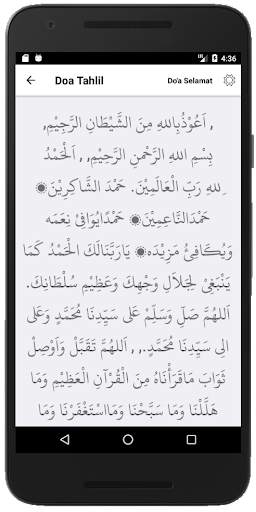 4:36
Doa Tahlil
Do'a Selamat
, اَعُوْذُبِاللهِ مِنَ الشَّيْطَانِ الرَّجِيْمِ,
بِسْمِ اللهِ الرَّحْمنِ الرَّحِيْمِ, , اَلْحَمْدُ
لِلهِ رَبِّ الْعَالَمِيْنَ. حَمْدَ الشَّاكِرِيْنَ۞
حَمْدَالنَّاعِمِيْنَ۞ حَمْدًايُوَافِيْ نِعَمَه
وَيُكَافِئُ مَزِيْدَه۞ يَارَبَّنَالَكَ الْحَمْدُ كَمَا
يَنْبَغِيْ لِجَلاَلِ وَجْهِكَ وَعَظِيْمِ سُلْطَانِكَ.
اَللهُمَّ صَلِّ وَسَلِّمْ عَلَى سَيِّدِنَا مُحَمَّدٍ وَعَلى
الِ سَيِّدِنَا مُحَمَّدٍ., , اَللهُمَّ تَقَبَّلْ وَاَوْصِلْ
ثَوَابَ مَاقَرَأْنَاهُ مِنَ الْقُرْآنِ الْعَظِيْمِ وَمَا
هَلَّلْنَا وَمَا سَبَّحْنَا وَمَااسْتَغْفَرْنَا وَمَا